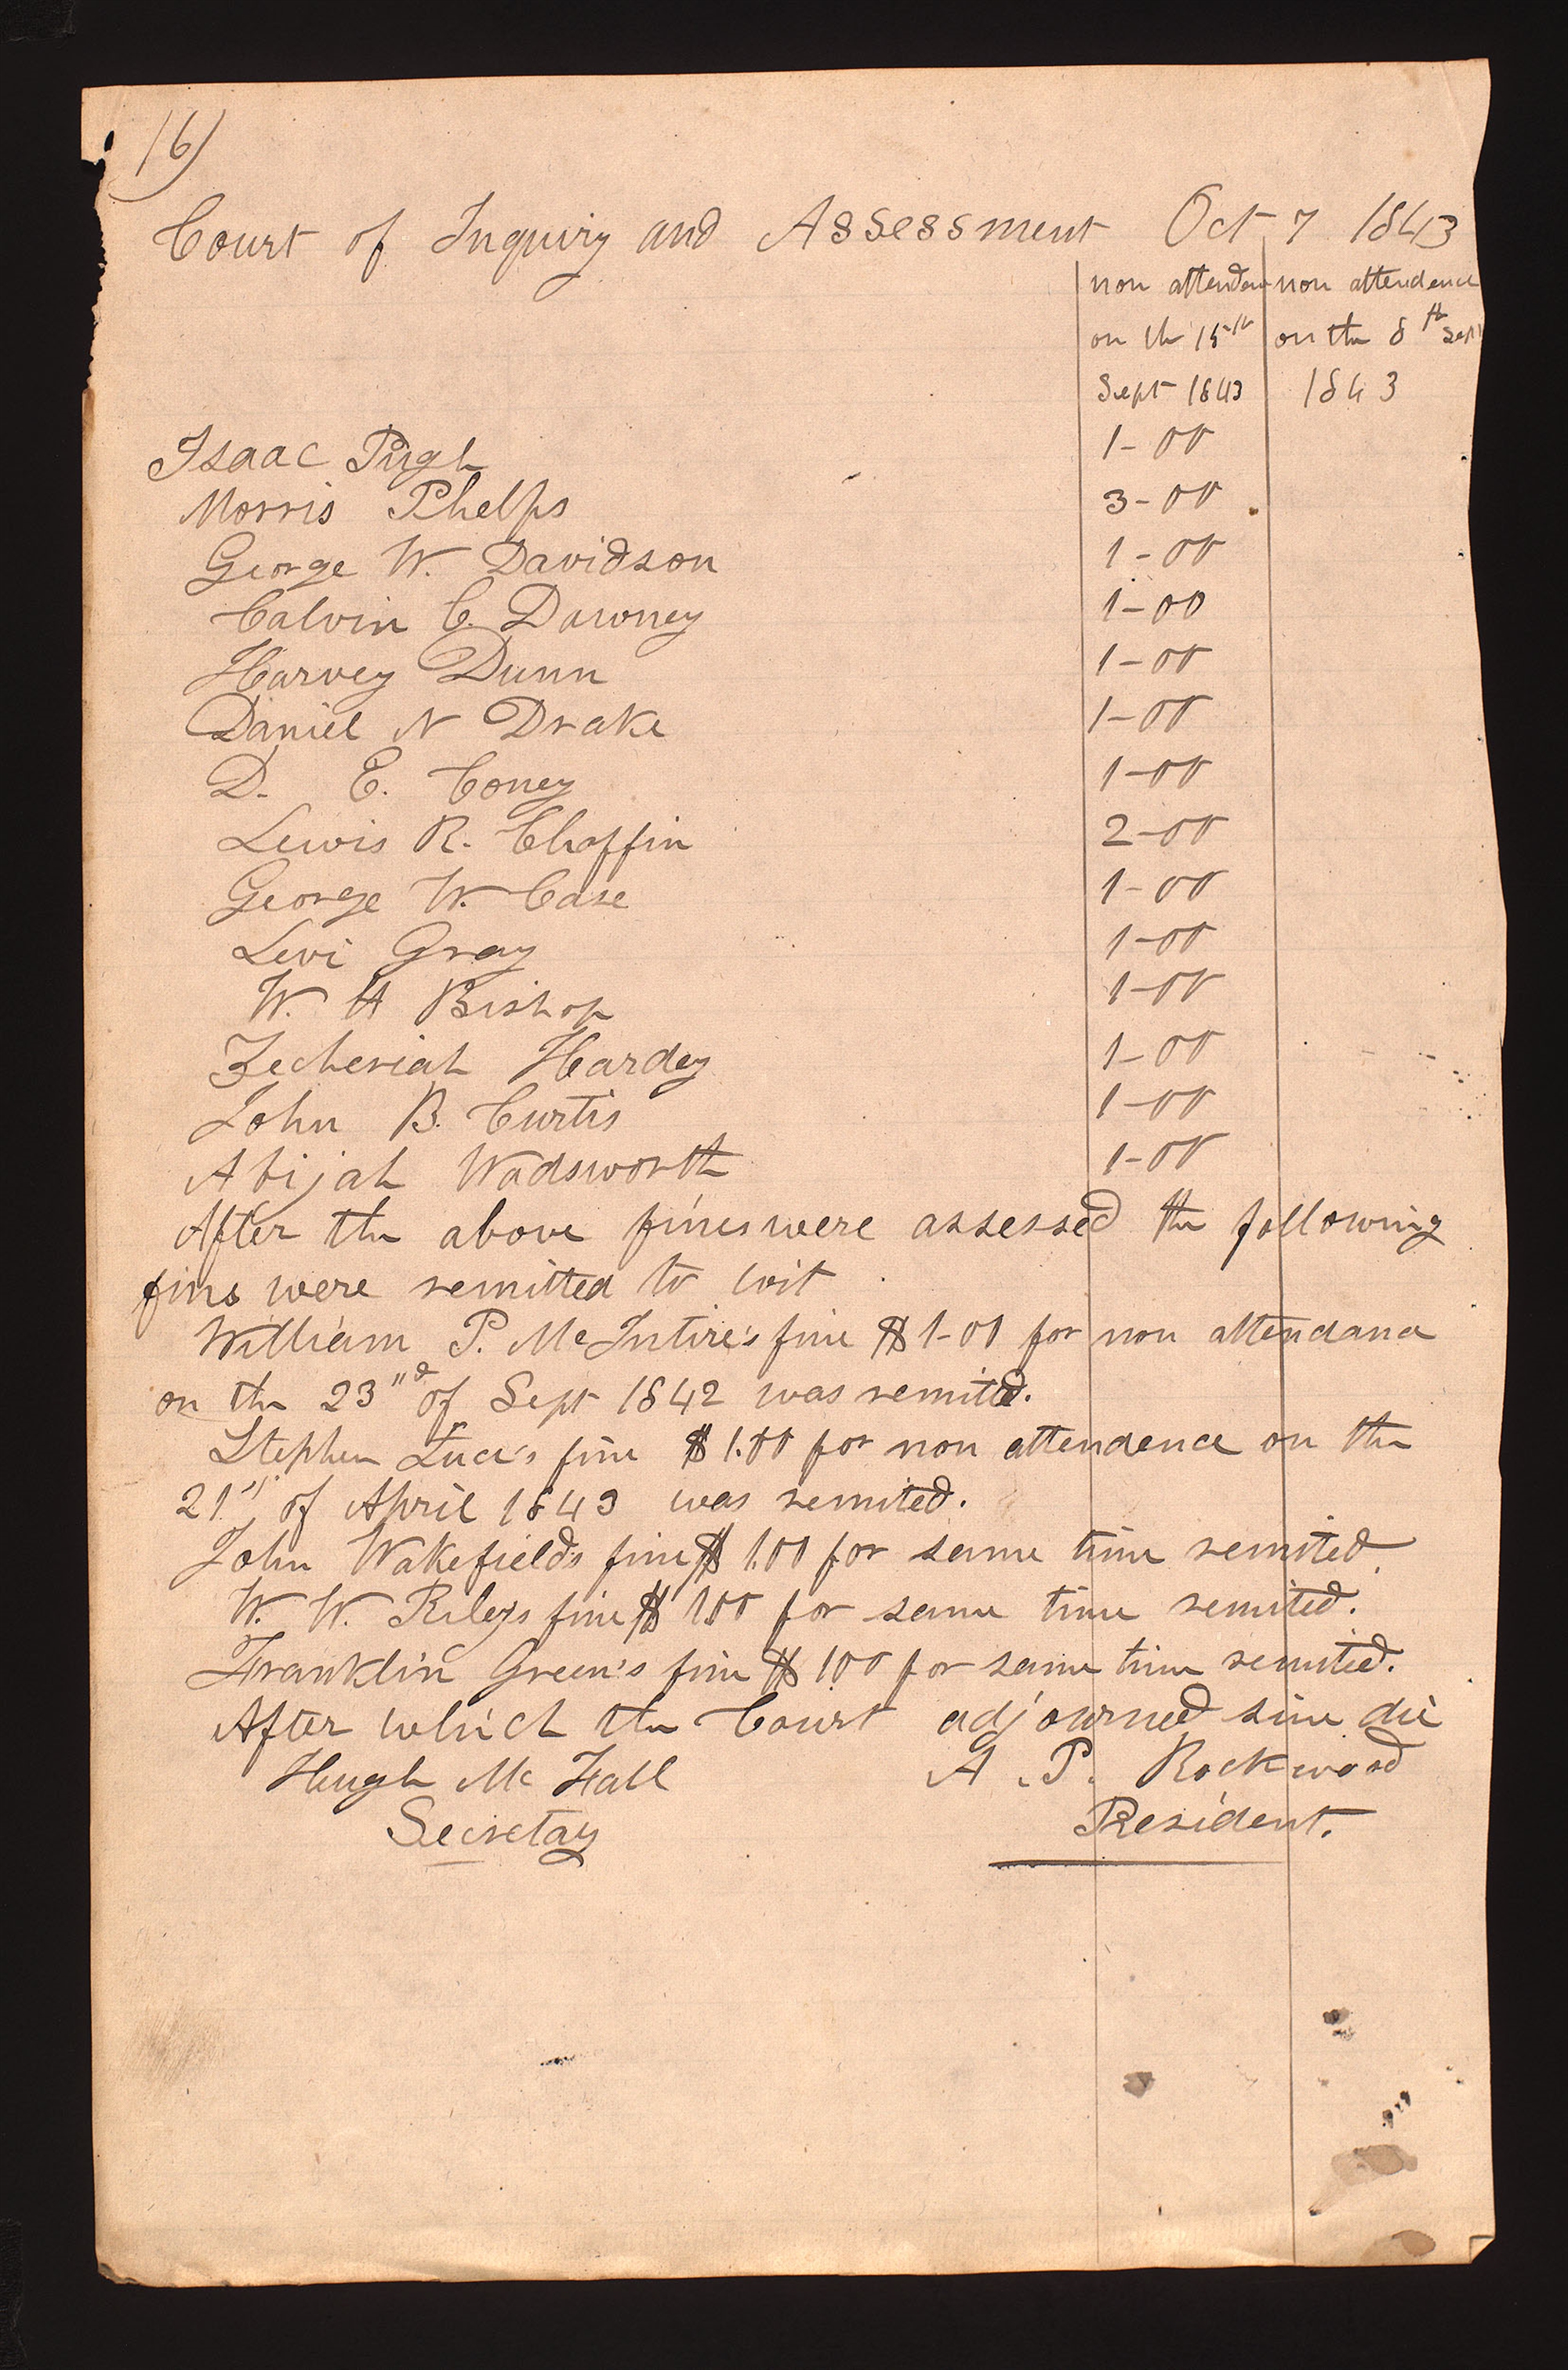 16)
Court of Inquiry and Assessment Oct 7 1843
non attendan non attendence
on th 15th on the 8th Sept
Sept 1843 1843
Isaac Pugh 1-00
Morris Phelps 3-00
George W. Davidson 1-00
Calvin C. Downey 1-00
Harvey Dunn 1-00
Daniel N Drake 1-00
D. E. Coney 1-00
Lewis R. Chaffin 2-00
George W. Case 1-00
Levi Gray 1-00
W. H Bishop 1-00
Zecheriah Hardey 1-00
John B. Curtis 1-00
Abijah Wadsworth 1-00
After the above fines were assessed the following
fins were remitted to wit
William P. McIntire's fine $1-00 for non attendance
on the 23"d of Sept 1842 was remitted.
Stephen Luce's fine $1.00 for non attendence on the
21" of April 1843 was remited.
John Wakefields fine $1.00 for same time remited.
W. W. Rileys fine $1.00 for same time remited.
Franklin Green's fine $1.00 for same time remited.
After which the Court adjourned sine die
Hugh Mc Fall A. P. Rockwood
Secretay President.